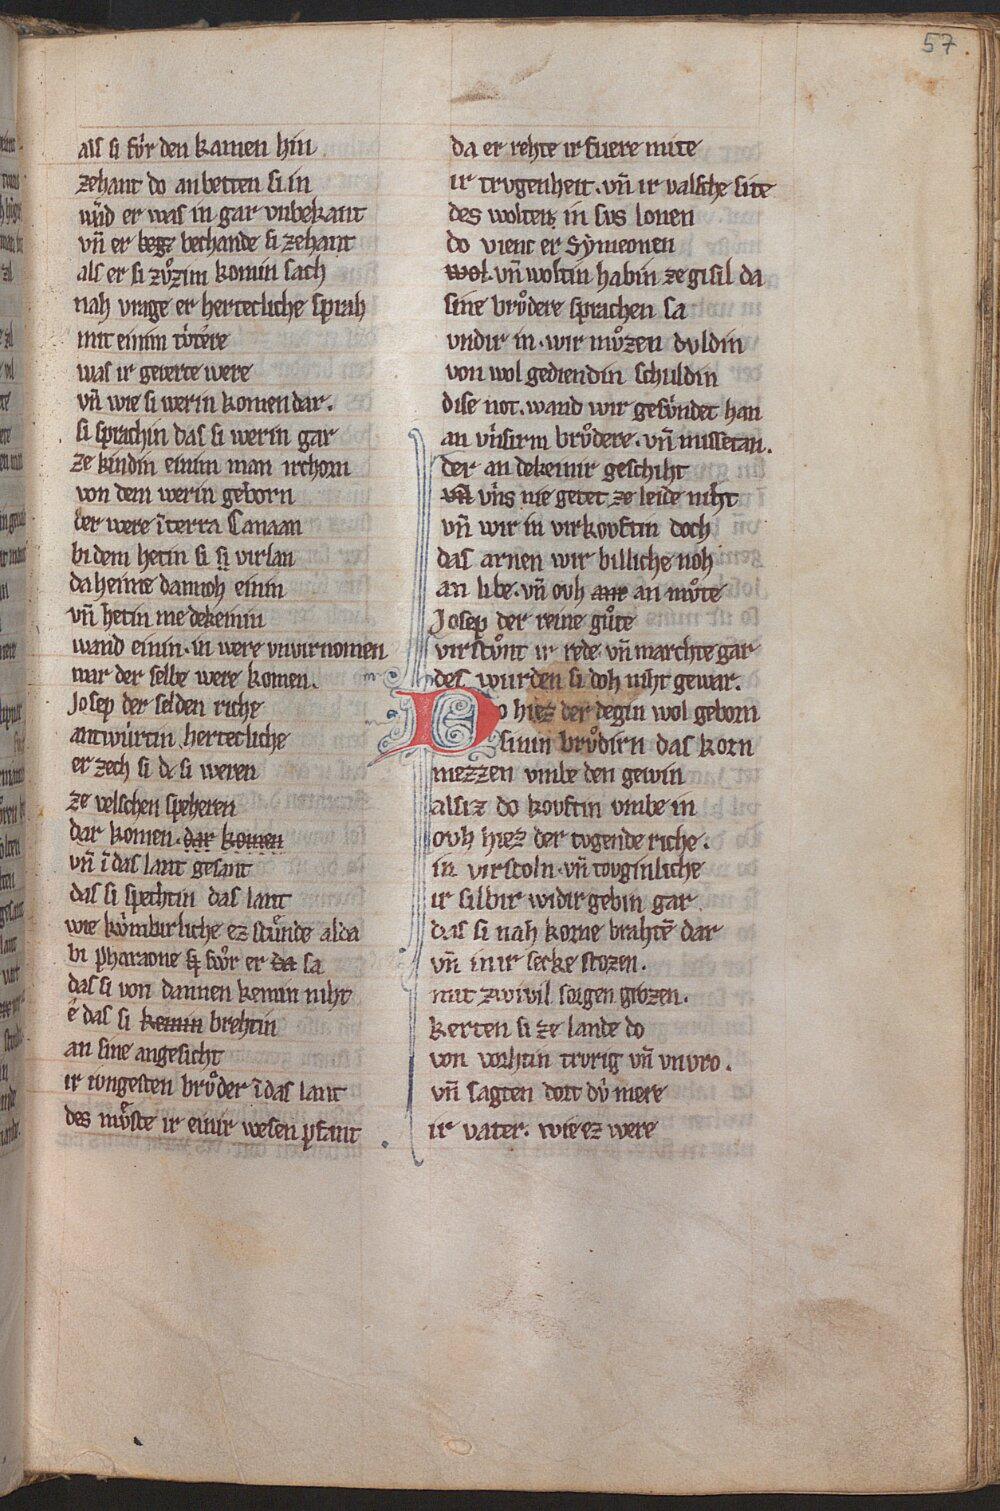 57
als si fúr den kamen hin
zehant do anbetten si in
wād er was in gar vnbekant
vñ er begz bechande si zehant
als er si zůzim komin sach
nah vrage er herteclihe sprah
mit einim tv́tére
was ir geverte were
vñ wie si werin komen dar.
si sprachin das si werin gar
ze kindin einim man irchorn
von dem werin geborn
der were ī terra Canaan
bi dem hetin si si virlan
da heime dannoh einin
vñ hetin me dekeinin
wand einin. in were vnvirnomen
war der selbe were komen.
Josep der selden riche
antwúrtin herteclihe
er zech si dc si weren
ze velschen speheren
dar komen. dar komen
vñ ī das lant gesant
das si spechtin das lant
wie kv́mbirliche ez stůnde alda
bi pharaone sp swůr er da sa
das si von dannen kemin niht
é das si kemin brehtin
an sine angesicht
ir iungesten brůder ī das lant
des mv̊ste ir einir wesen pfant
da er rehte ir fuere mite
ir trvgenheit. vñ ir valsche site
des wolten in svs lonen
do vienc er Sẏmeonen
wol. vñ woltin habin ze gisil da
sine brv̊dere sprachen sa
vndir in. wir mv̊zen dvldin
von wol gediendin schuldin
dise not. wand wir gesv́ndet han
an vńsirm brv̊dere. vñ missetan.
der an dekeinir geschiht
vñ vńs nie getet ze leide niht
vñ wir in virkovftin doch
das arnen wir billiche noh
an libe. vñ ovh ane an mv̊te
Josep der reine gůte
virstv̊nt ir rede vñ marchte gar
des wurden si doh niht gewar.
Do hiez der degin wol geborn
sinin brv̊dirn das korn
mezzen vmbe den gewin
als iz do kovftin vmbe in
ovh hiez der tvgende riche.
in virstoln. vñ tovginliche
ir silbir widir gebin gar
das si nah korne brahtē dar
vñ in ir secke stozen.
mit zwivil sorgen grozen.
kerten si ze lande do
von vorhtin trvrig vñ vnvro.
vñ sagten dort dv́ mere
ir vater. wie ez were